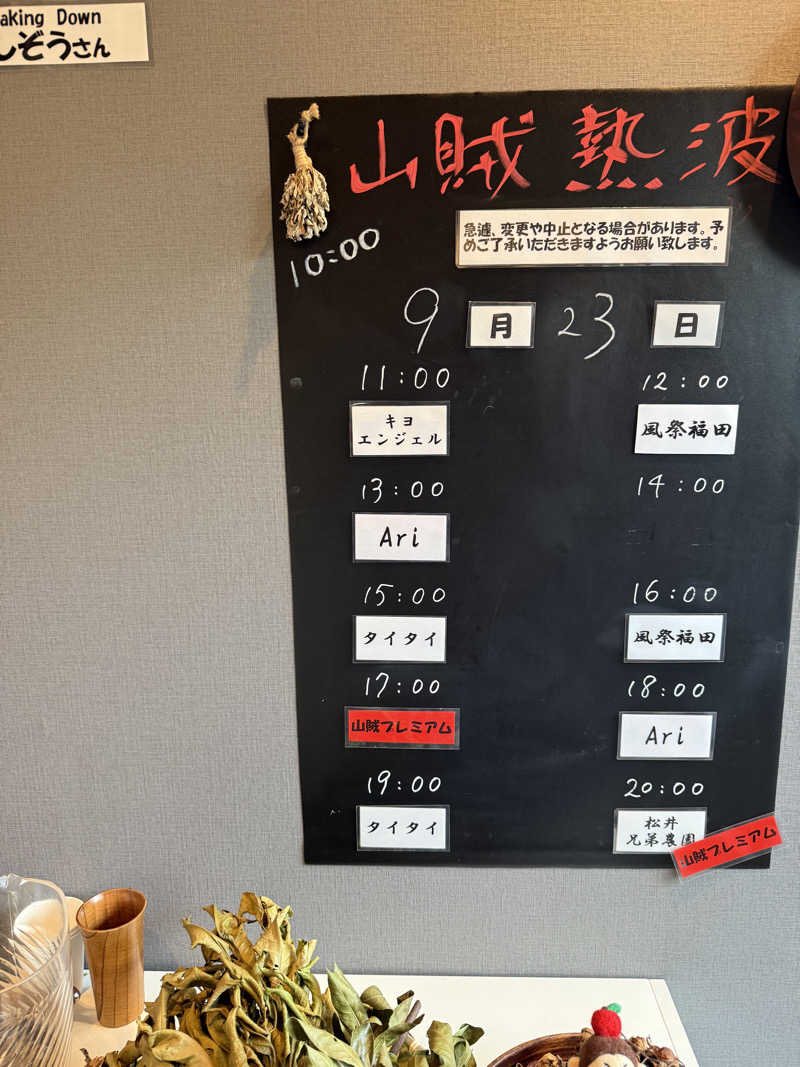 aking Down
しぞうさん
山賊 熱波
急遽、変更や中止となる場合があります。予
めご了承いただきますようお願い致します。
10:00
9 月 23 日
11:00
キヨ
エンジェル
12:00
風祭福田
13:00
Ari
14:00
15:00
タイタイ
16:00
風祭福田
17:00
山賊プレミアム
18:00
Ari
19:00
タイタイ
20:00
松井
兄弟農園
山賊プレミアム